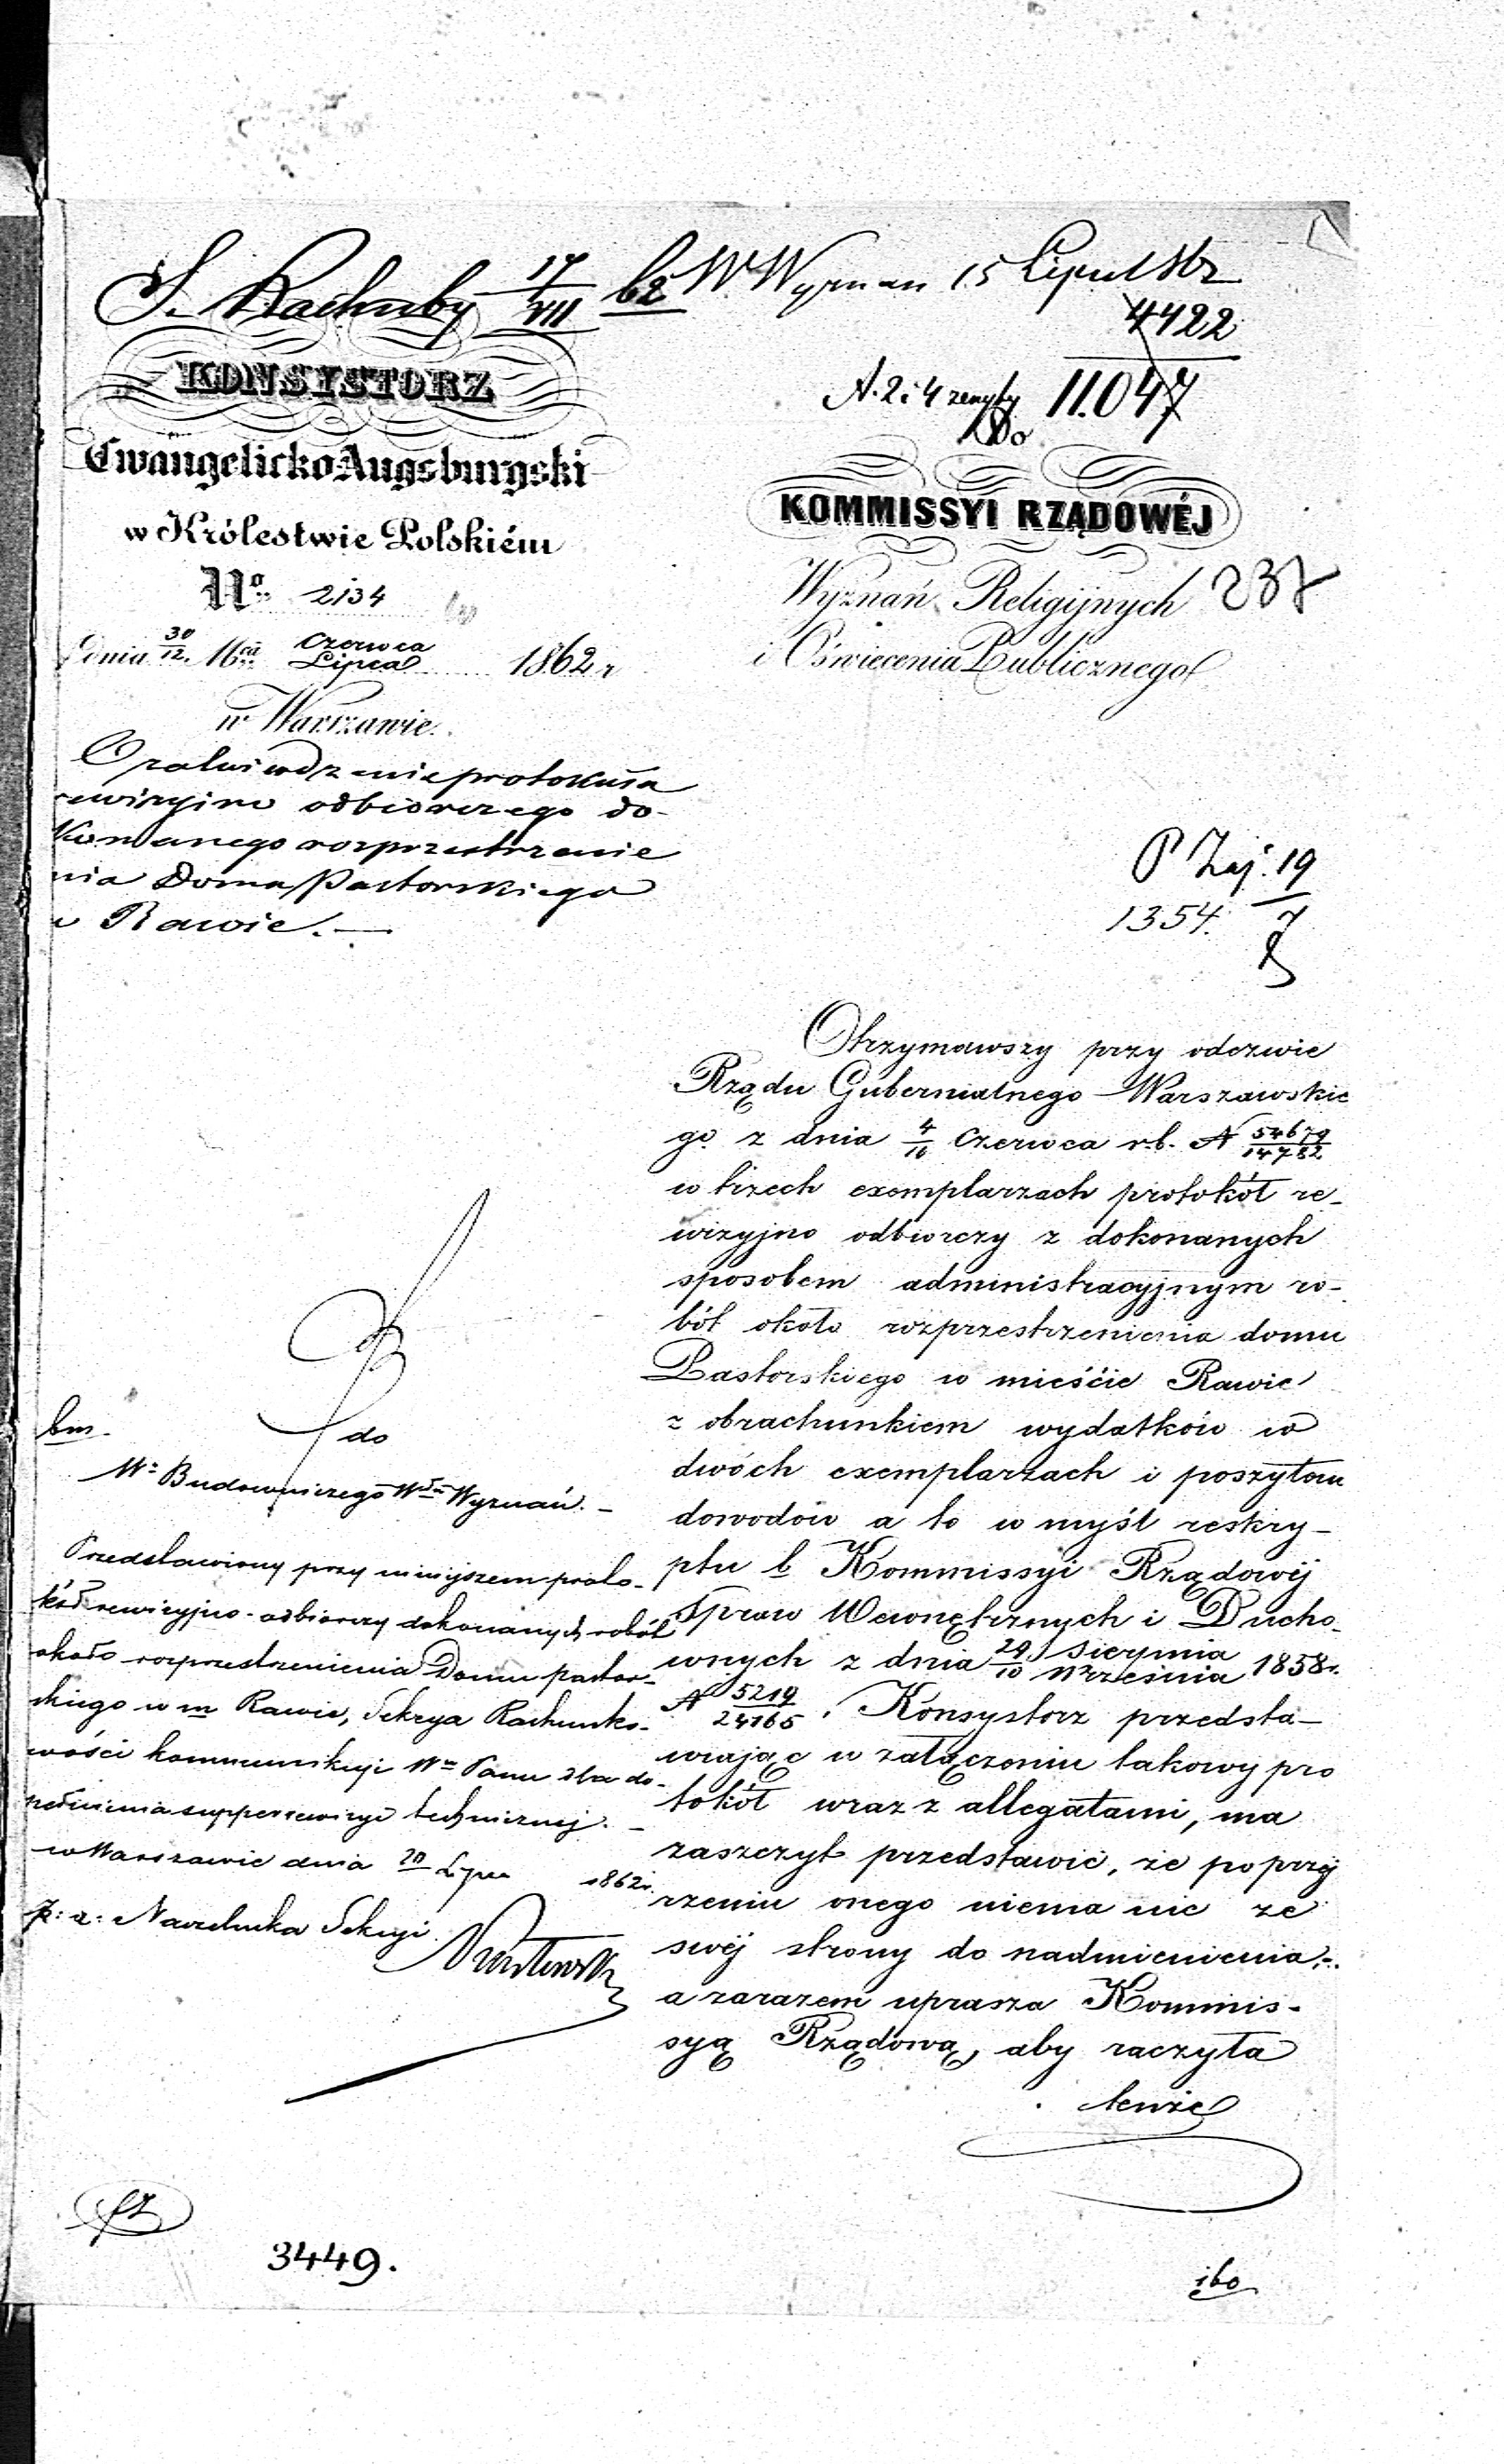 S. Rachuby 17/VII 62 W. Wyznań 15 Lipca
4422
A. 2 i 4 zeszyty 11.047
Do
KONSYSTORZ
Ewangelicko-Augsburgski
w Królestwie Polskiém
No 2134
dnia 30/12 Mca Czerwca/Lipca 1862 r
w Warszawie.
O zatwierdzenie protokułu
rewizyjno odbiorczego do-
konanego rozprzestrzenie
nia Domu Pastorskiego
w Rawie.—
KOMMISSYI RZĄDOWÉJ
Wyznań Religijnych
i Oświecenia Publicznego
237
P Zaj. 19/7
1354.
Otrzymawszy przy odezwie
Rządu Gubernialnego Warszawskie
go z dnia 4/16 Czerwca r.b. N 54679/14782
w trzech exemplarzach protokół re-
wizyjno odbiorczy z dokonanych
sposobem administracyjnym ro-
bót około rozprzestrzenienia domu
Pastorskiego w mieście Rawie
z obrachunkiem wydatków w
dwóch exemplarzach i poszytem
dowodów a to w myśl reskry-
ptu b Kommissyi Rządowéj
Spraw Wewnętrznych i Ducho-
wnych z dnia 29/10 Sierpnia/Września 1858 r.
N 5219/24165, Konsystorz przedsta-
wiając w załączeniu takowy pro
tokół wraz z allegatami, ma
zaszczyt przedstawić, że po przej
rzeniu onego niema nic ze
swéj strony do nadmienienia,
a zarazem uprasza Kommis-
syą Rządową, aby raczyła
tenże
do
Wo Budowniczego Wdu Wyznań.—
Przedstawiony przy niniejszem proto-
kół rewizyjno-odbiorczy dokonanych robót
około rozprzestrzenienia Domu pastor-
skiego w m Rawie, Sekcya Rachunko-
wości kommunikuje Wu Panu dla do-
pełnienia superrewizyi technicznej.—
w Warszawie dnia 20 Lipca 1862 r.
p: o: Naczelnika Sekcyi
3449.